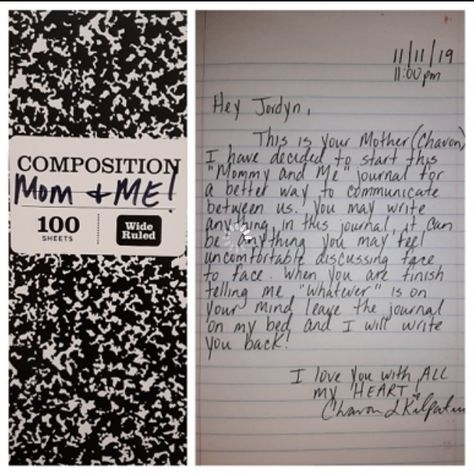 COMPOSITION
Mom & ME!
100
SHEETS
Wide
Ruled
11/11/19
11:00pm
Hey Jordyn,
This is your Mother (Chavon)
I have decided to start this
"Mommy and Me" journal for
a better way to communicate
between us. You may write
anything in this journal, it can
be anything you may feel
uncomfortable discussing face
to face. When you are finish
telling me "whatever" is on
your mind leave the journal
on my bed and I will write
you back!
I love you with ALL
my HEART,
Chavon